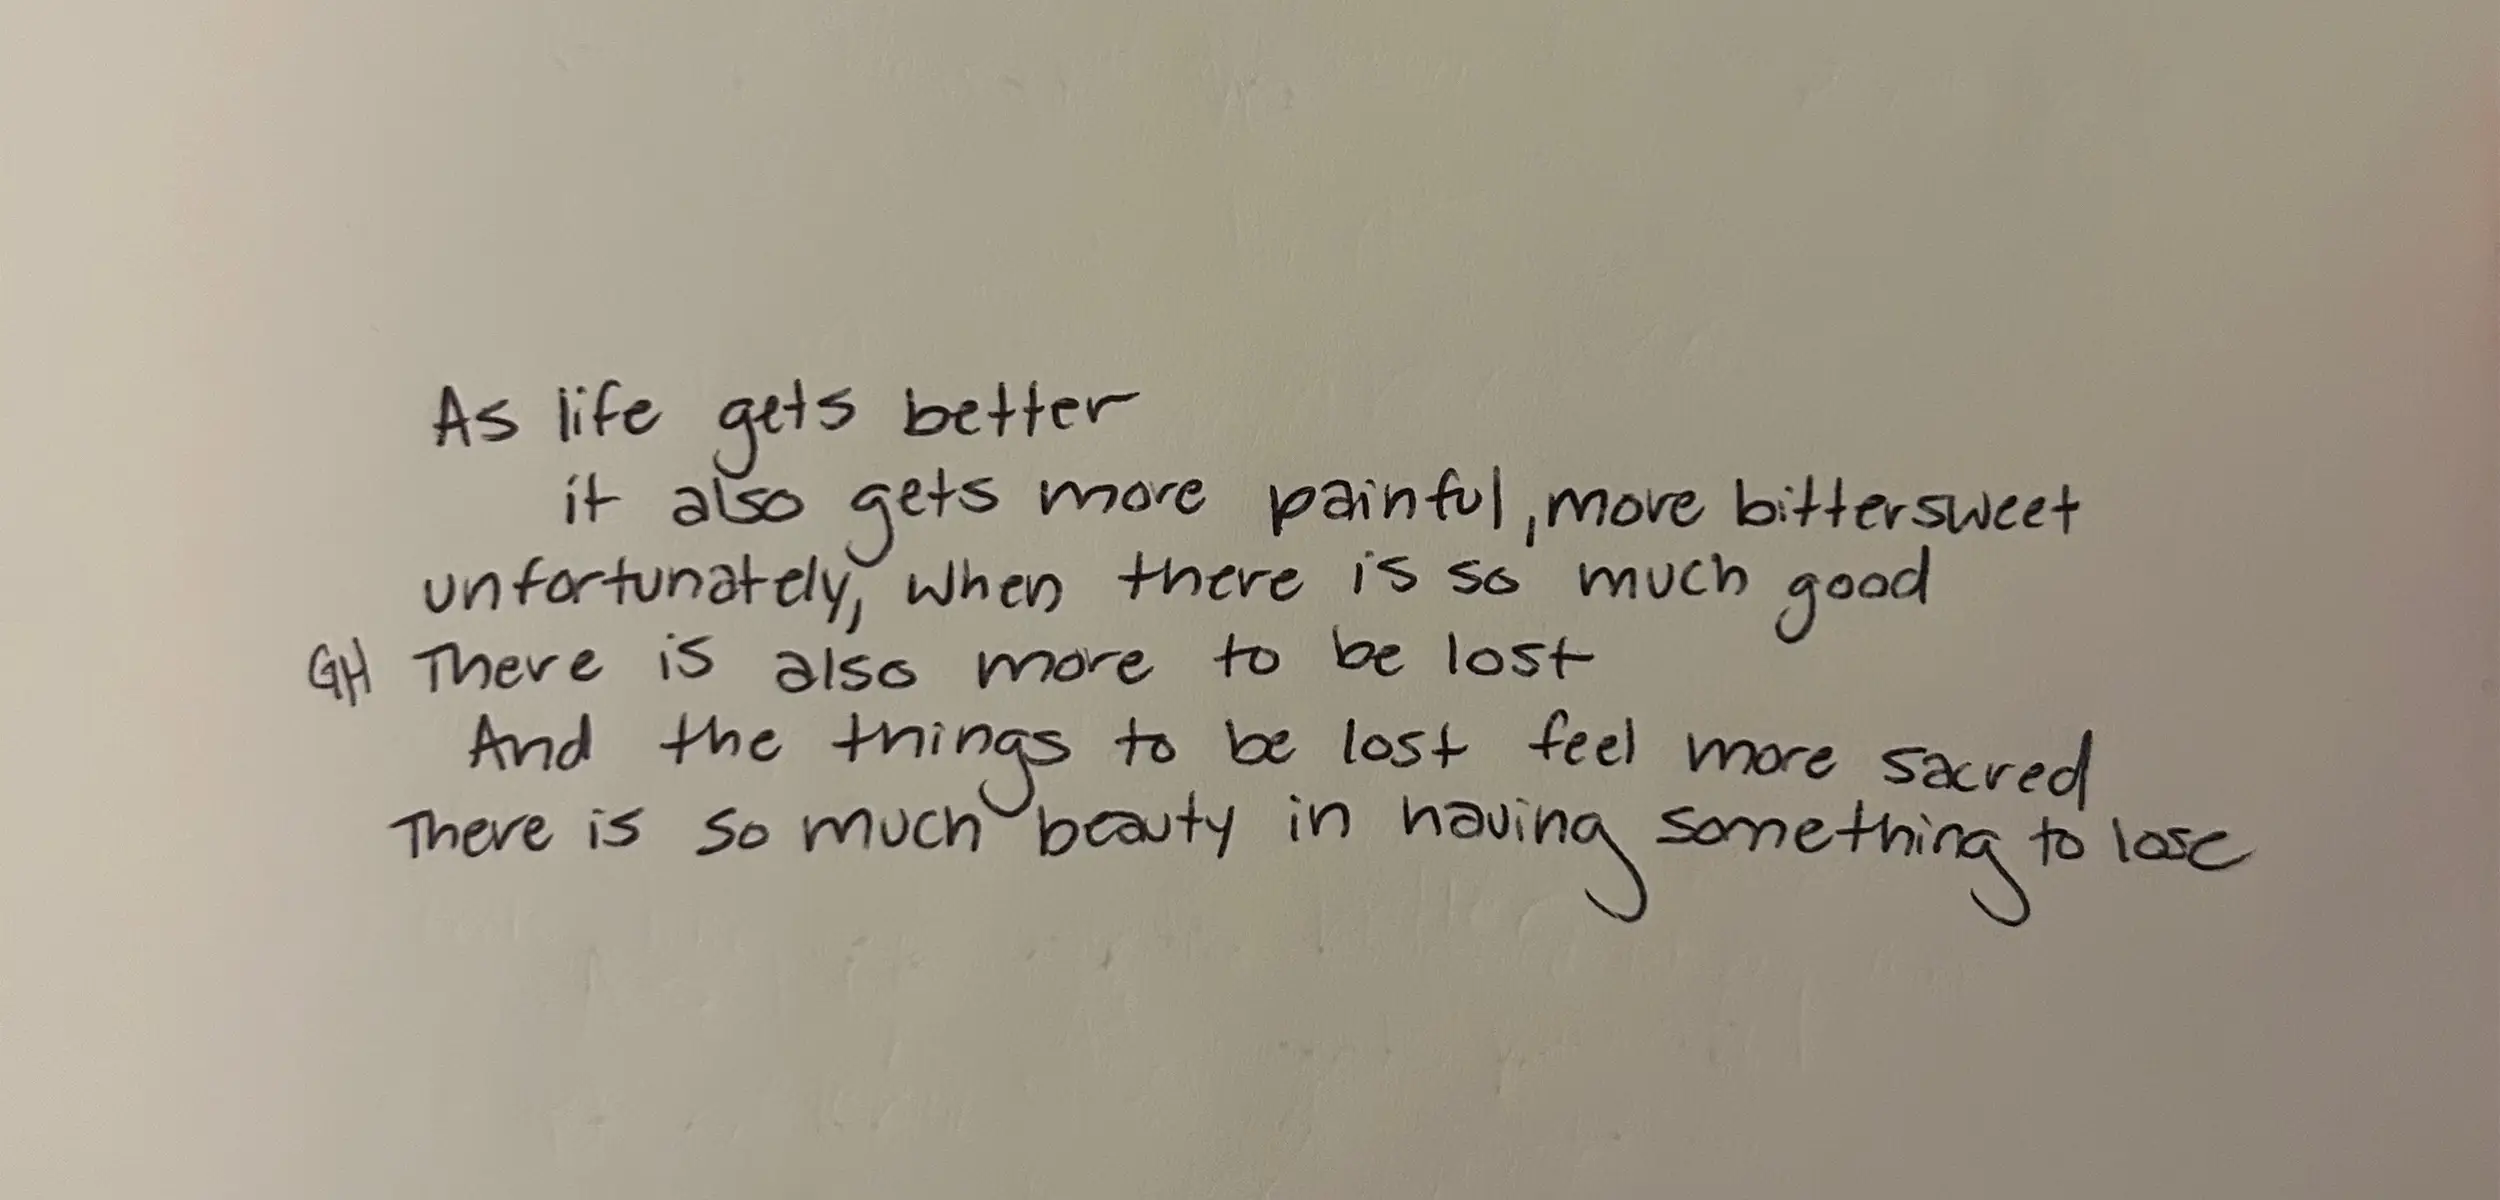 As life gets better
it also gets more painful, more bittersweet
unfortunately, when there is so much good
GH There is also more to be lost
And the things to be lost feel more sacred
There is so much beauty in having something to lose